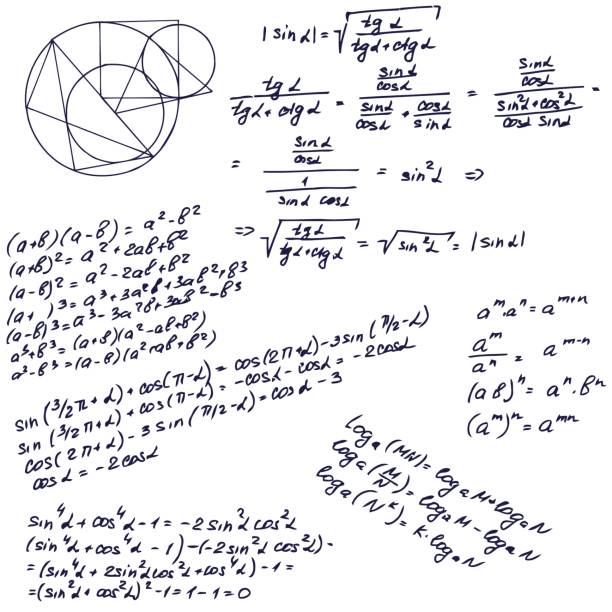 |sin α| = √(tg α / (tg α + ctg α))
tg α / (tg α + ctg α) = (sin α / cos α) / (sin α / cos α + cos α / sin α) = (sin α / cos α) / ((sin²α + cos²α) / (cos α sin α)) =
= (sin α / cos α) / (1 / (sin α cos α)) = sin²α =>
=> √(tg α / (tg α + ctg α)) = √(sin²α) = |sin α|
(a+b)(a-b) = a²-b²
(a+b)² = a²+2ab+b²
(a-b)² = a²-2ab+b²
(a+ )³ = a³+3a²b+3ab²+b³
(a-b)³ = a³-3a²b+3ab²-b³
a³+b³ = (a+b)(a²-ab+b²)
a³-b³ = (a-b)(a²+ab+b²)
sin(3/2π+α) + cos(π-α) = cos(2π+α) - 3sin(π/2-α)
sin(3/2π+α) + cos(π-α) = -cosα - cosα = -2cosα
cos(2π+α) - 3sin(π/2-α) = cosα - 3
cosα = -2cosα
aᵐ·aⁿ = aᵐ⁺ⁿ
aᵐ / aⁿ = aᵐ⁻ⁿ
(ab)ⁿ = aⁿ·bⁿ
(aᵐ)ⁿ = aᵐⁿ
logₐ(MN) = logₐM + logₐN
logₐ(M/N) = logₐM - logₐN
logₐ(Nᵏ) = k·logₐN
sin⁴α + cos⁴α - 1 = -2sin²α cos²α
(sin⁴α + cos⁴α - 1) - (-2sin²α cos²α) =
= (sin⁴α + 2sin²α cos²α + cos⁴α) - 1 =
= (sin²α + cos²α)² - 1 = 1 - 1 = 0